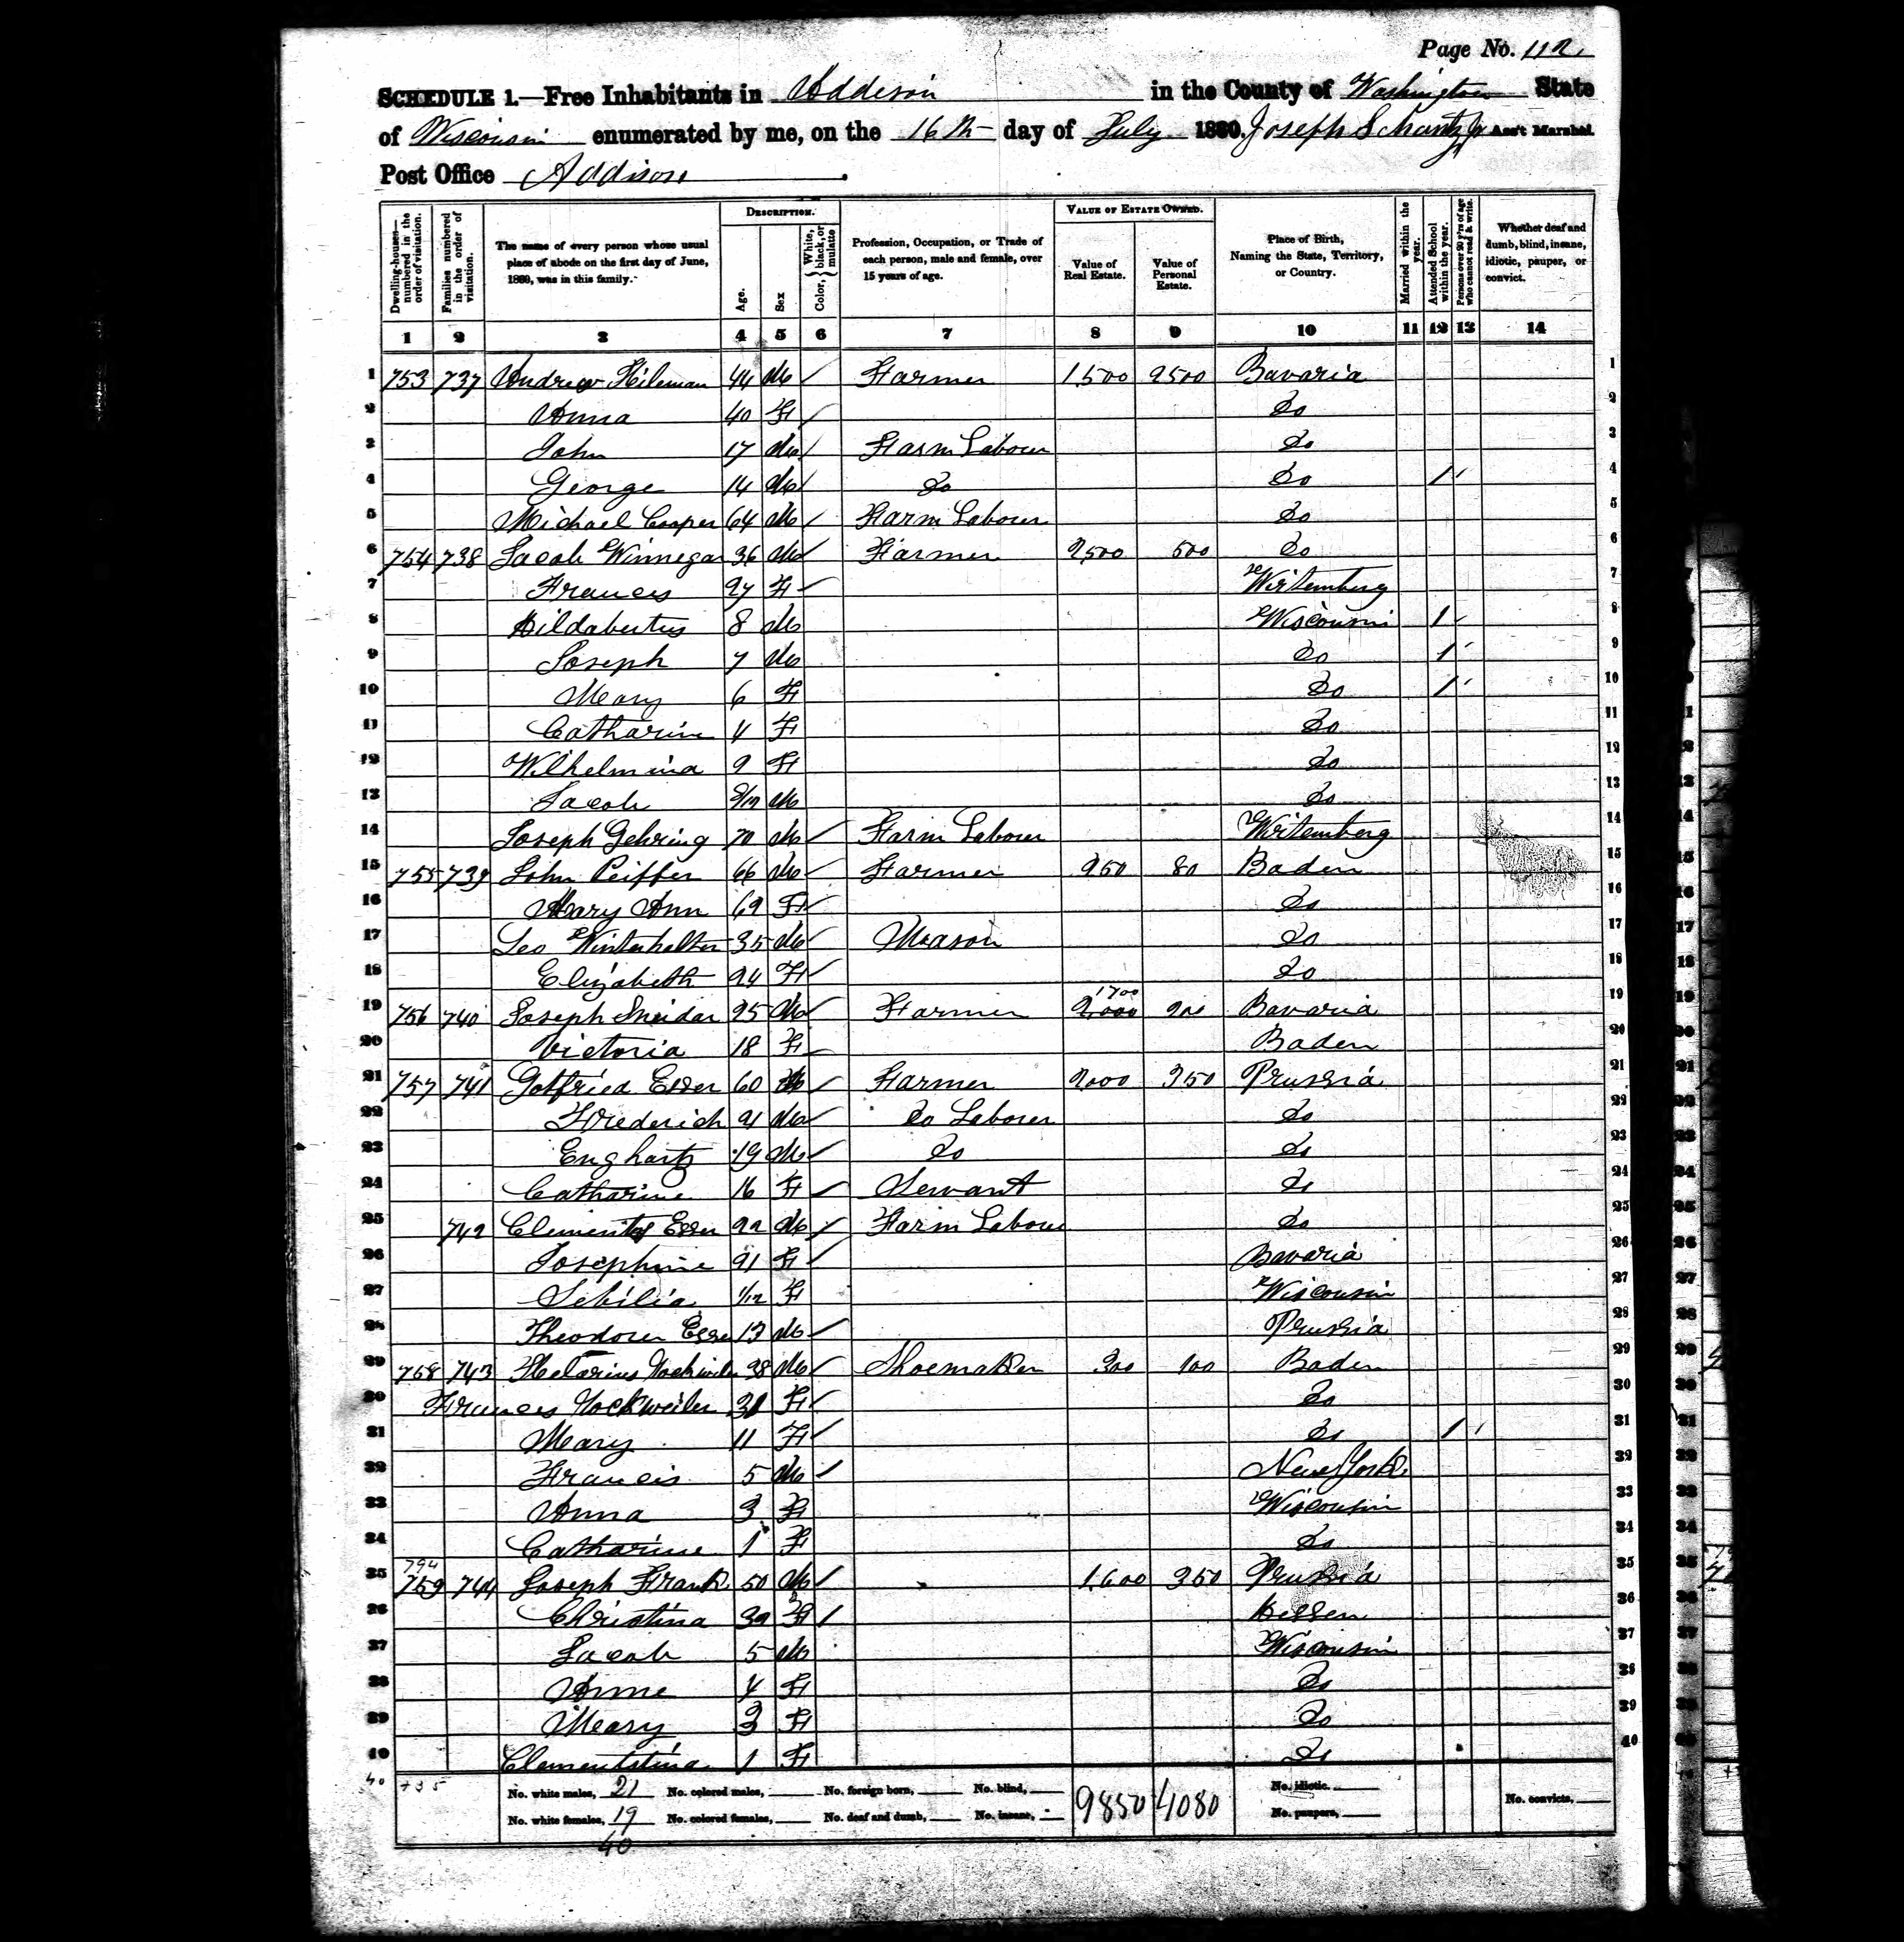 Page No. 112.
SCHEDULE 1.—Free Inhabitants in Addison in the County of Washington State
of Wisconsin enumerated by me, on the 16th day of July 1860. Joseph Schantz Jr Ass't Marshal.
Post Office Addison.
DESCRIPTION. VALUE OF ESTATE OWNED.
Dwelling-houses—numbered in the order of visitation. Families numbered in the order of visitation. The name of every person whose usual place of abode on the first day of June, 1860, was in this family. Age. Sex Color, { White, black, or mulatto Profession, Occupation, or Trade of each person, male and female, over 15 years of age. Value of Real Estate. Value of Personal Estate. Place of Birth, Naming the State, Territory, or Country. Married within the year. Attended School within the year. Persons over 20 y'rs of age who cannot read & write. Whether deaf and dumb, blind, insane, idiotic, pauper, or convict.
1 2 3 4 5 6 7 8 9 10 11 12 13 14
1 753 737 Andrew Hileman 44 M / Farmer 1,500 2500 Bavaria 1
2 Anna 40 F / Do 2
3 John 17 M / Farm Labour Do 3
4 George 14 M / Do Do 1 4
5 Michael Cooper 64 M / Farm Labour Do 5
6 754 738 Jacob Winnegar 36 M / Farmer 2,500 500 Do 6
7 Frances 27 F / Wirtemberg 7
8 Hildabertus 8 M Wisconsin 1 8
9 Joseph 7 M Do 1 9
10 Mary 6 F Do 1 10
11 Catharin 4 F Do 11
12 Wilhelmina 2 F Do 12
13 Jacob 8/12 M Do 13
14 Joseph Gehring 70 M / Farm Labour Wirtemberg 14
15 755 739 John Peiffer 66 M / Farmer 250 80 Baden 15
16 Mary Ann 62 F / Do 16
17 Leo Winterhalter 35 M / Mason Do 17
18 Elizabeth 24 F / Do 18
19 756 740 Joseph Sneider 25 M / Farmer 1700 2,000 200 Bavaria 19
20 Victoria 18 F / Baden 20
21 757 741 Gotfried Esser 60 M / Farmer 2000 350 Prussia 21
22 Frederich 21 M / Do Labourer Do 22
23 Enghartz 19 M / Do Do 23
24 Catharine 16 F / Servant Do 24
25 742 Clements Esser 22 M / Farm Labour Do 25
26 Josephine 21 F / Bavaria 26
27 Sibilia 1/12 F Wisconsin 27
28 Theodour Esser 13 M / Prussia 28
29 758 743 38 M / Shoemaker 300 100 Baden 29
30 Frances Nockweiler 31 F / Do 30
31 Mary 11 F / Do 1 31
32 Francis 5 M / New York 32
33 Anna 3 F Wisconsin 33
34 Catharine 1 F Do 34
794
35 759 744 Joseph Frank 50 M / 1,600 350 Prussia 35
36 Christina 32 F / Hessen 36
37 Jacob 5 M Wisconsin 37
38 Anne 4 F Do 38
39 Meary 3 F Do 39
40 Clementstina 1 F Do 40
40 +35 No. white males, 21 No. colored males, No. foreign born, No. blind, 9850 4080 No. idiotic.
No. white females, 19 No. colored females, No. deaf and dumb, No. insane, No. paupers, No. convicts,
40